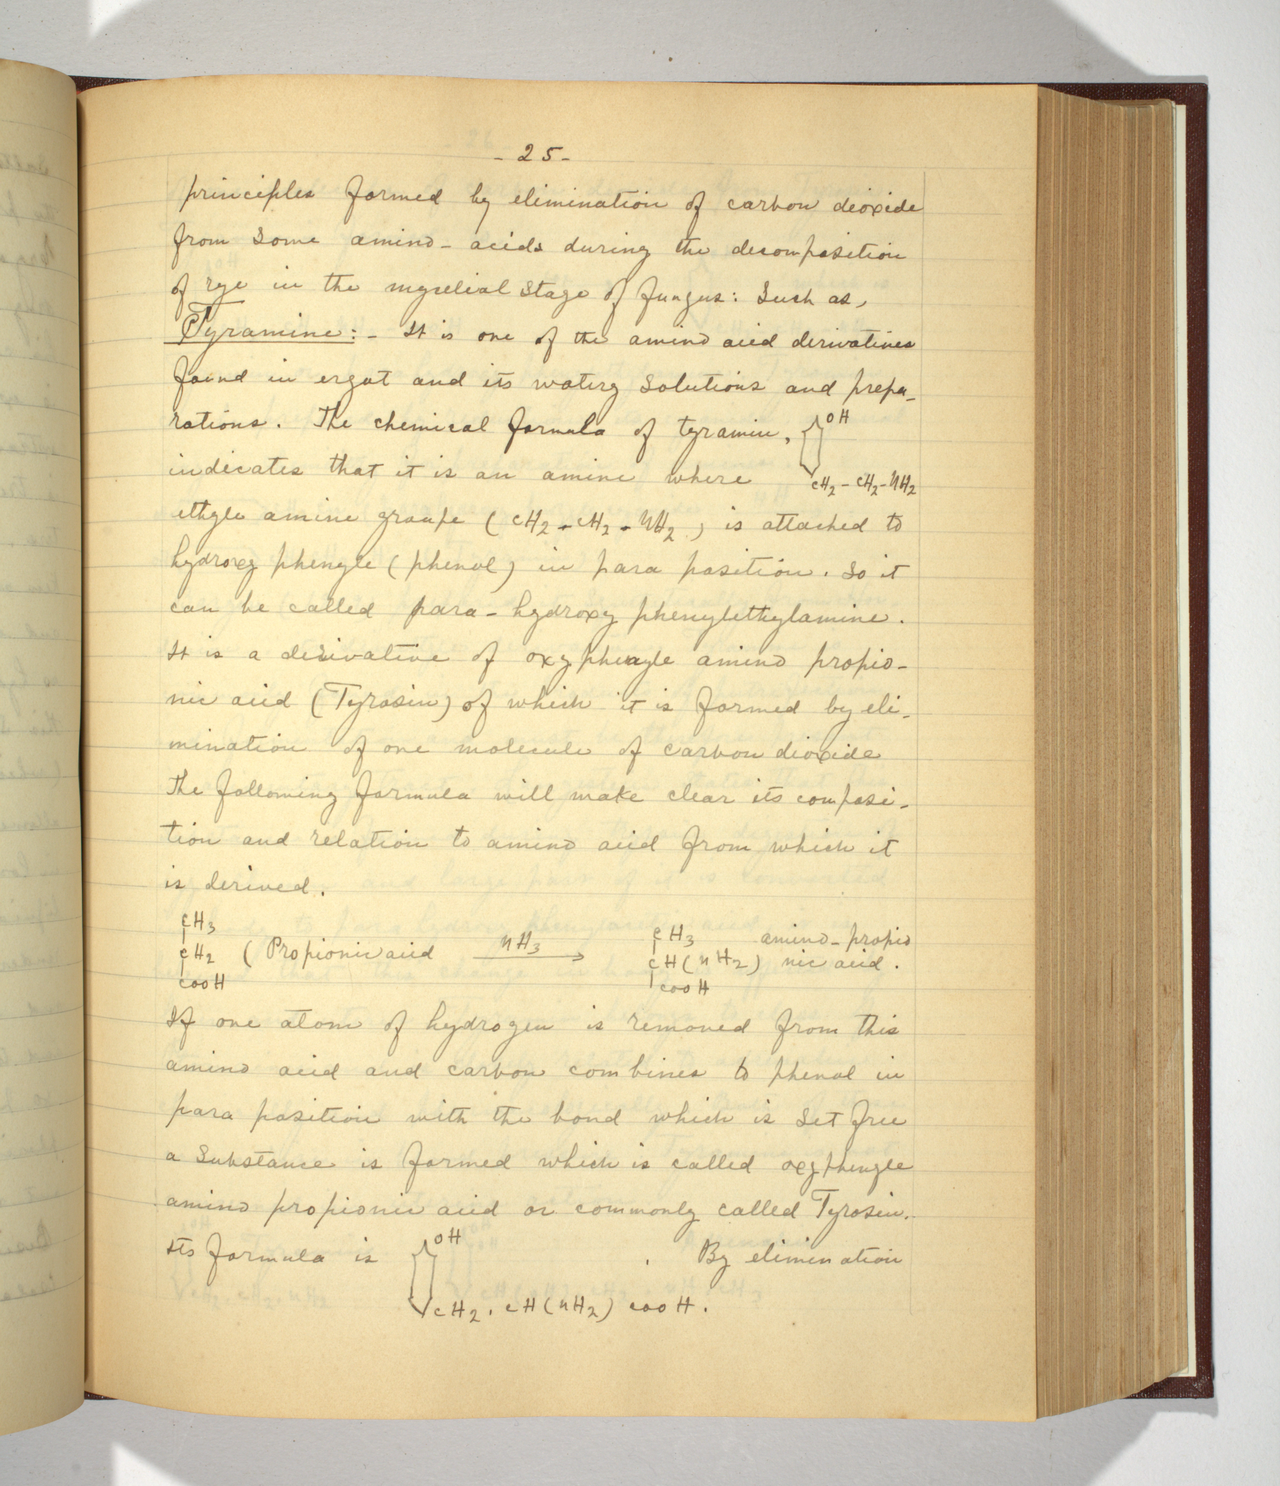 - 25 -
principles formed by elimination of carbon dioxide
from some amino-acids during the decomposition
of rye in the mycelial stage of fungus: Such as,
Tyramine:- It is one of the amino acid derivatives
found in ergot and its watery solutions and prepa-
rations. The chemical formula of tyramin,
OH
indicates that it is an amine where
CH2-CH2-NH2
ethyle amine groupe (CH2-CH2-NH2) is attached to
hydroxy phenyle (phenol) in para position. So it
can be called para-hydroxy phenylethylamine.
It is a derivative of oxyphenyle amino propio-
nic acid (Tyrosin) of which it is formed by eli-
mination of one molecule of carbon dioxide
The following formula will make clear its composi-
tion and relation to amino acid from which it
is derived.
CH3
CH2 (Propionic acid NH3 CH(NH2) nic acid.
CH3 amino-propio
COOH COOH
If one atom of hydrogen is removed from this
amino acid and carbon combines to phenol in
para position with the bond which is set free
a substance is formed which is called oxyphenyle
amino propionic acid or commonly called Tyrosin.
Its formula is OH . By elimination
CH2. CH(NH2) COOH.